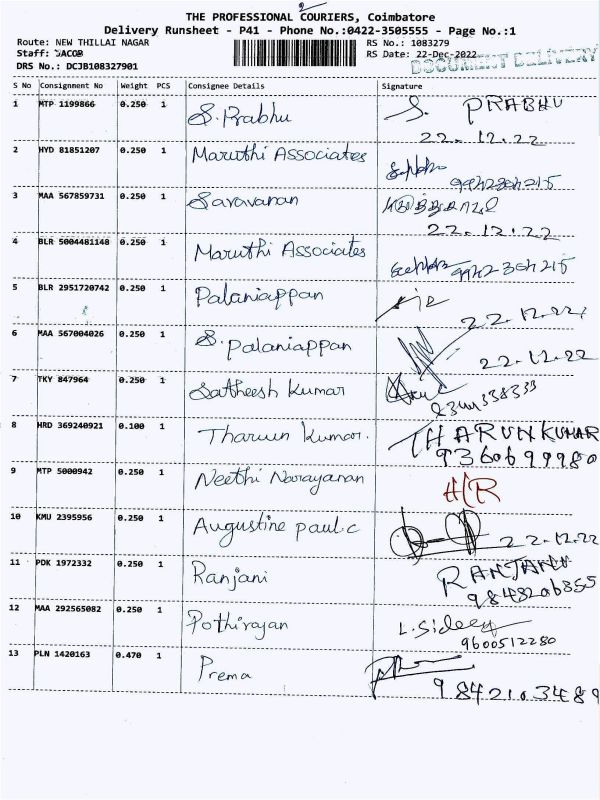 2
THE PROFESSIONAL COURIERS, Coimbatore
Delivery Runsheet - P41 - Phone No.:0422-3505555 - Page No.:1
Route: NEW THILLAI NAGAR RS No.: 1083279
Staff: JACOB RS Date: 22-Dec-2022
DOCUMENT DELIVERY
DRS No.: DCJB108327901
S No Consignment No Weight PCS Consignee Details Signature
1 MTP 1199866 0.250 1 S. Prabhu S. PRABHU
22.12.22
2 HYD 81851207 0.250 1 Maruthi Associates
3 MAA 567859731 0.250 1 Saravanan
22.12.22
4 BLR 5004481148 0.250 1 Maruthi Associates
5 BLR 2951720742 0.250 1 Palaniappan
22.12.22
6 MAA 567004026 0.250 1 S. Palaniappan
22.12.22
7 TKY 847964 0.250 1 Satheesh Kumar
8 HRD 369240921 0.100 1 Tharun Kumar. THARUNKUMAR
9360699980
9 MTP 5000942 0.250 1 Neethi Narayanan H/R
10 KMU 2395956 0.250 1 Augustine paul.c 22.12.22
11 PDK 1972332 0.250 1 Ranjani RANJANI
9848206855
12 MAA 292565082 0.250 1 Pothirajan L.Sideeq
9600512280
13 PLN 1420163 0.470 1 Prema
9842103489